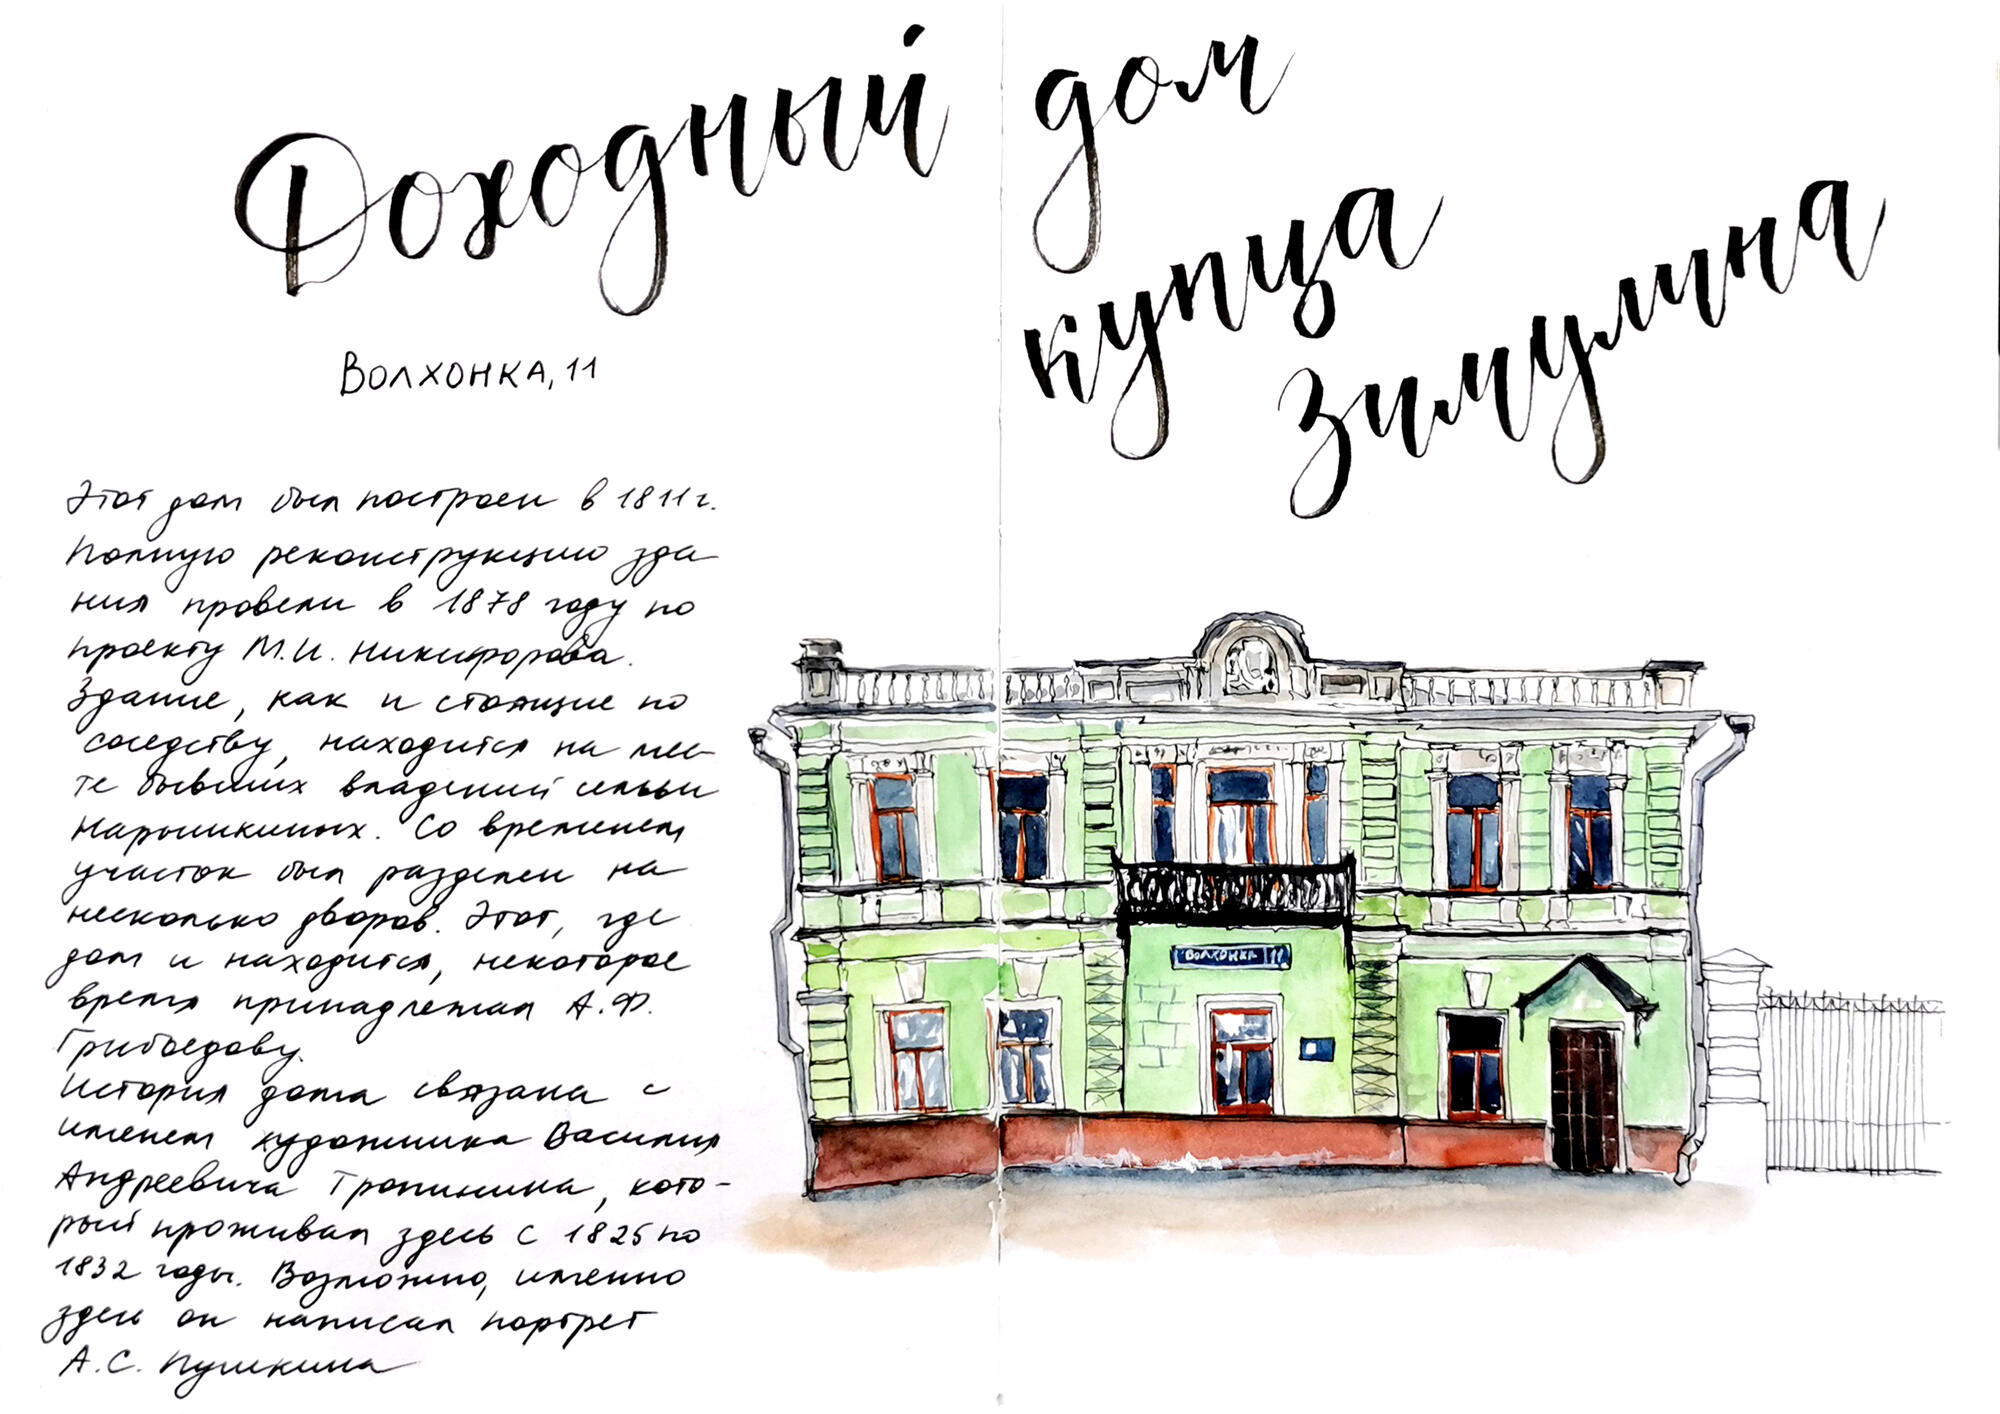 Доходный дом
купца
Зимулина
Волхонка, 11
Этот дом был построен в 1811 г.
Полную реконструкцию зда
ния провели в 1878 году по
проекту М.И. Никифорова.
Здание, как и стоящие по
соседству, находится на мес
те бывших владений семьи
Нарышкиных. Со временем
участок был разделен на
несколько дворов. Этот, где
дом и находится, некоторое
время принадлежал А.Ф.
Грибоедову.
История дома связана с
именем художника Василия
Андреевича Тропинина, кото-
рый проживал здесь с 1825 по
1832 годы. Возможно, именно
здесь он написал портрет
А.С. Пушкина
ВОЛХОНКА 11